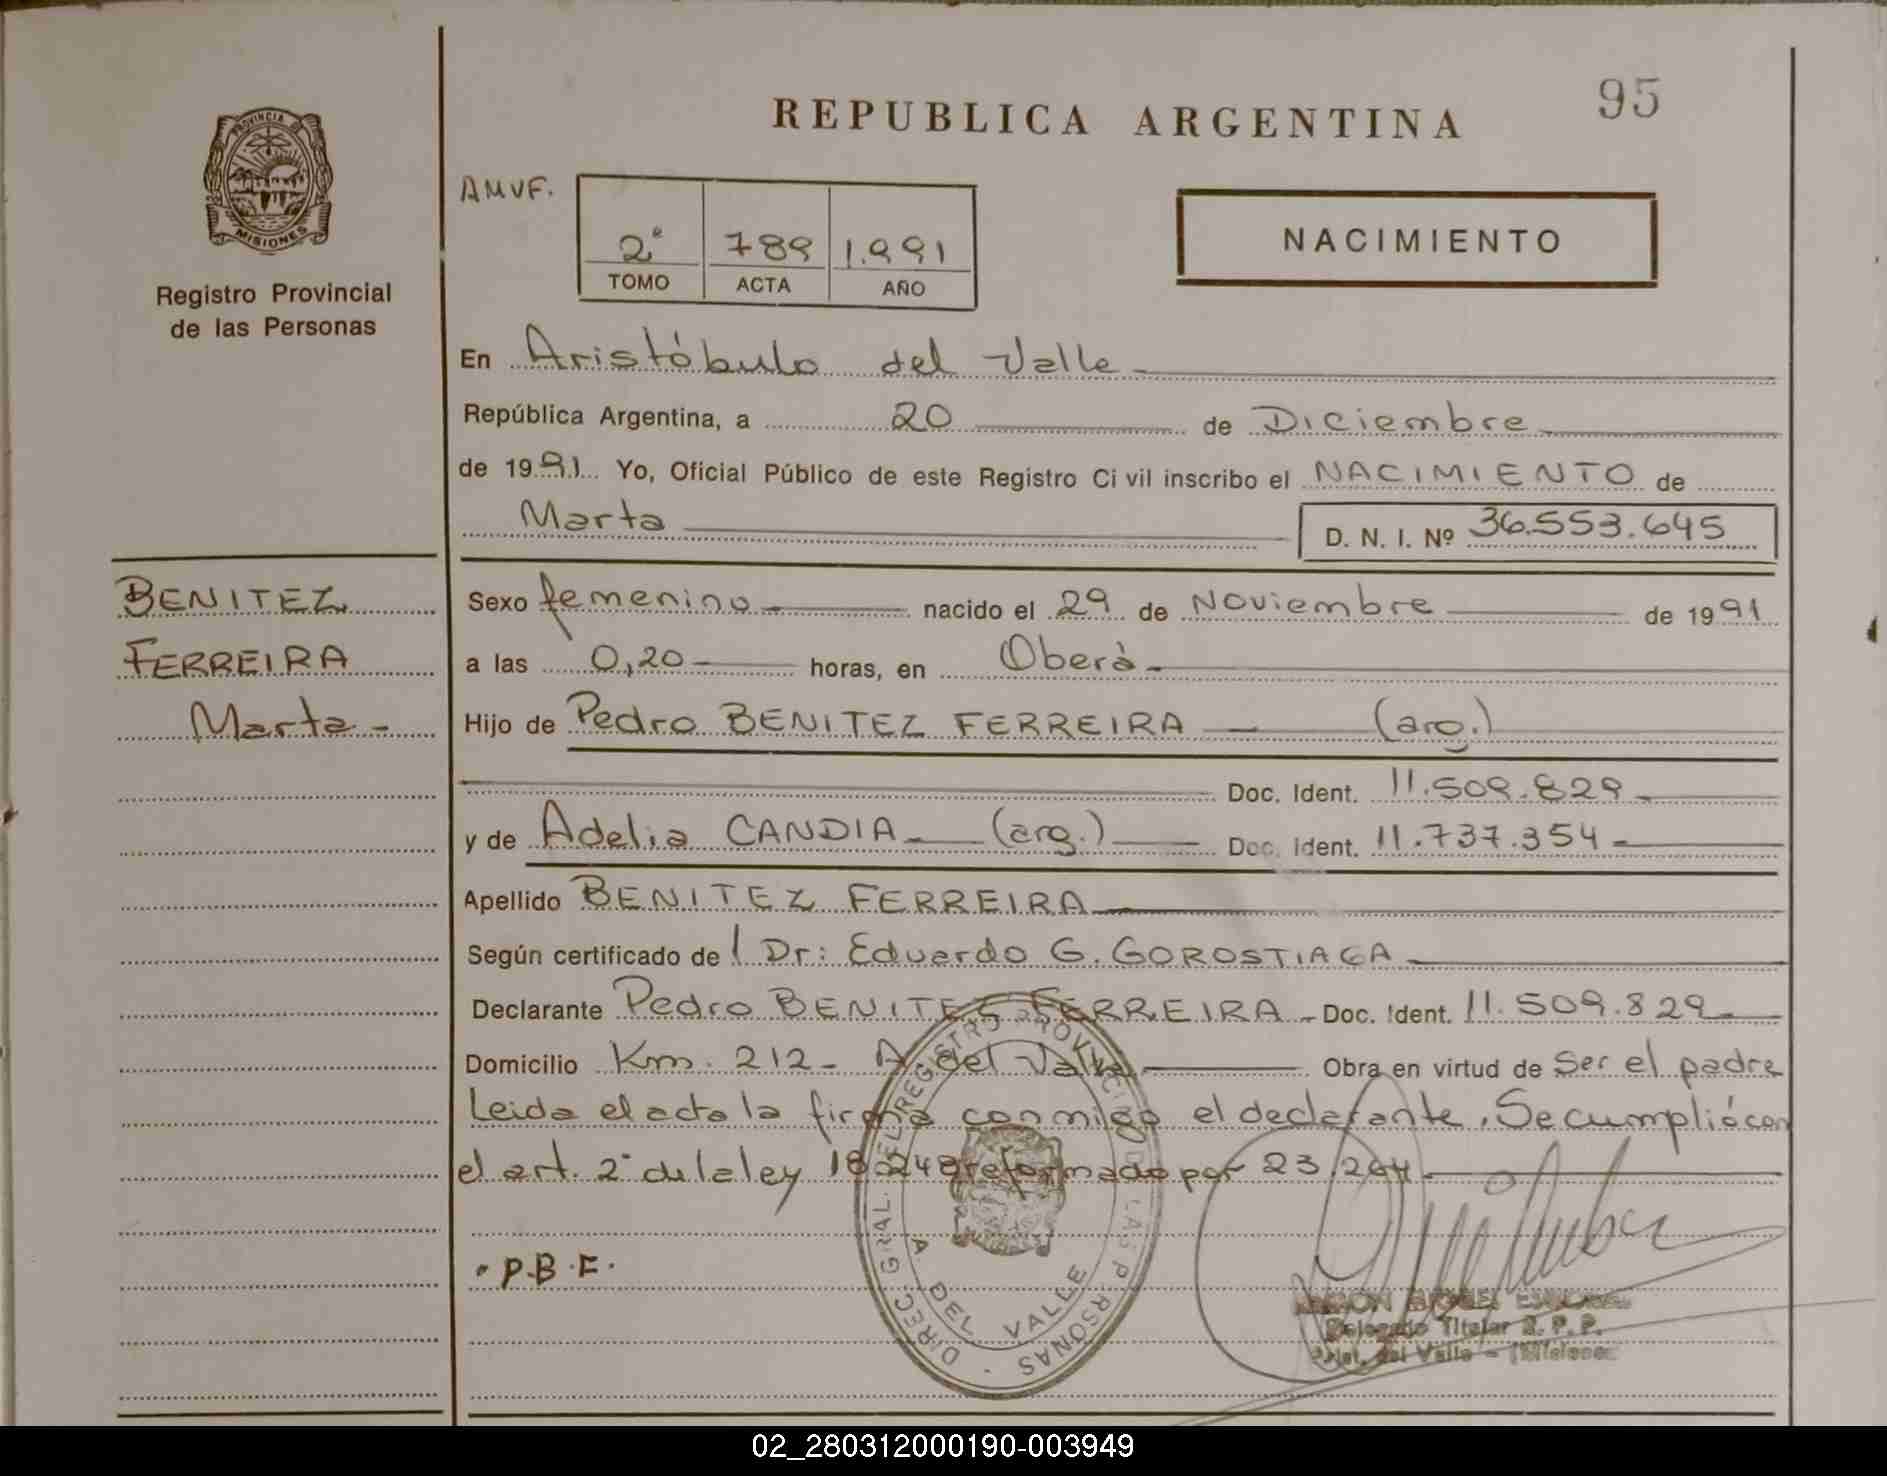 95
REPUBLICA ARGENTINA
PROVINCIA DE
MISIONES
Registro Provincial
de las Personas
AMVF.
2º 789 1.991
TOMO ACTA AÑO
NACIMIENTO
En Aristóbulo del Valle
República Argentina, a 20 de Diciembre
de 1991 Yo, Oficial Público de este Registro Civil inscribo el NACIMIENTO de
Marta D. N. I. Nº 36.553.645
BENITEZ
FERREIRA
Marta -
Sexo femenino nacido el 29 de Noviembre de 1991
a las 0,20 horas, en Oberà
Hijo de Pedro BENITEZ FERREIRA (arg.)
Doc. Ident. 11.509.829
y de Adelia CANDIA (arg.) Doc. Ident. 11.737.354
Apellido BENITEZ FERREIRA
Según certificado de l Dr: Eduardo G. GOROSTIAGA
Declarante Pedro BENITEZ FERREIRA - Doc. Ident. 11.509.829
Domicilio Km. 212 - A. del Valle Obra en virtud de Ser el padre
Leida el acta la firma conmigo el declarante. Se cumplió con
el art. 2º de la ley 18.248 reformado por 23.264
P.B.F.
DIREC. GRAL. DEL REGISTRO PROVINCIAL DE LAS PERSONAS
A. DEL VALLE
Delegado Titular R. P. P.
del Valle - Misiones
02_280312000190-003949